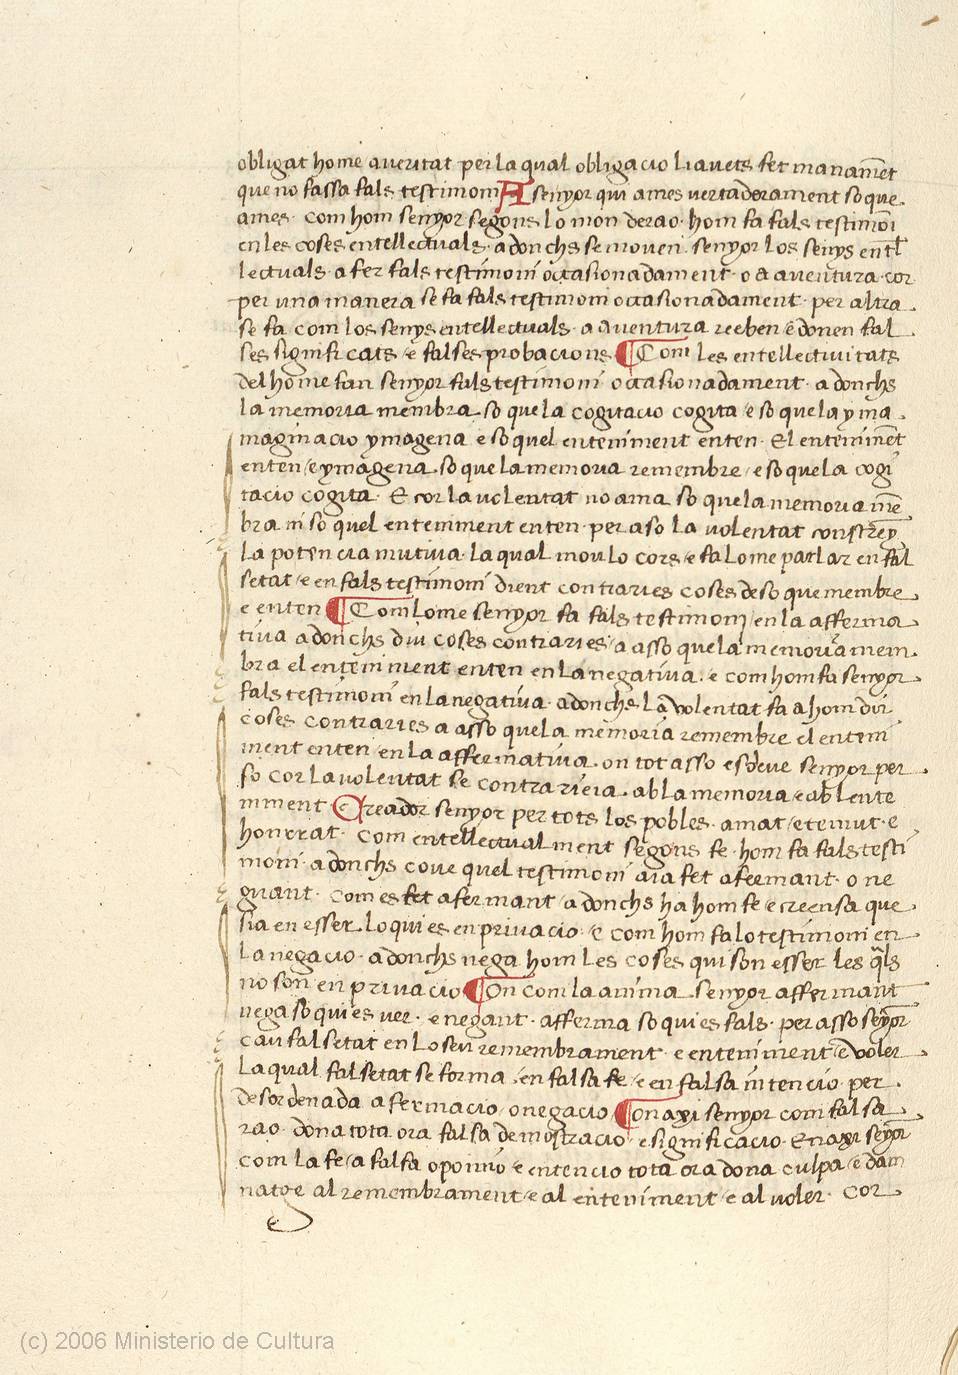 obligat home a veritat per la qual obligacio li avets fet manam̅et
que no fassa fals testimoni A senyor qui ames vertaderament so que
ames · Com hom senyor segons lo mon de rao · hom fa fals testimoni
en les coses entellectuals · adonchs se moven · senyor los senys entel
lectuals · a fer fals testimoni occasionadament · o a aventura · cor
per una manera se fa fals testimoni occasionadament · per altra
se fa com los senys entellectuals · a aventura reeben e donen fal
ses significats e falses probacions ¶ Com les entellectivitats
del home fan senyor fals testimoni occasionadament · adonchs
la memoria membra so que la cogitacio cogita e so que la yma
maginacio ymagena e so quel enteniment enten · El entenim̅et
enten e ymagena so que la memoria remembre e so que la cogi
tacio cogita · E cor la volentat no ama so que la memoria me̅
bra ni so quel enteniment enten · per aso la volentat constreny
la potencia motiva · la qual mou lo cors e fa lome parlar en fal
setat e en fals testimoni dient contraries coses de so que membre
e enten ¶ Com lome senyor fa fals testimoni en la afferma
tiva adonchs diu coses contraries a asso que la memoria mem
bra el enteniment enten en la negativa · e com hom fa senyor
fals testimoni en la negativa · adonchs la volentat fa a hom dir
coses contraries a asso que la memoria remembre el enteni
ment enten en la affermativa · on tot asso esdeve senyor per
so cor la volentat se contrarieia · ab la memoria e ab lente
niment Creador senyor per tots los pobles · amat e temut · e
honrrat · Com entellectualment segons fe · hom fa fals testi
moni · adonchs cove quel testimoni aia fet afermant · o ne
guant · Com es fet afermant adonchs ha hom fe e creensa que
sia en esser lo qui es en privacio · e com hom fa lo testimoni en
la negacio · adonchs nega hom les coses qui son esser les q̅ls
no son en privacio ¶ On com la anima senyor affermant
nega so qui es ver · e negant · afferma so qui es fals · per asso senyor
cau falsetat en lo seu remembrament · e enteniment e voler
la qual falsetat se forma · en falsa fe e en falsa intencio · per
desordenada afermacio o negacio ¶ On axi senyor com falsa
rao · dona tota ora falsa demostracio e significacio · En axi senyor
com la fe a falsa oponnio e entencio tota ora dona culpa e dam
natge al remembrament e al enteniment e al voler · Cor